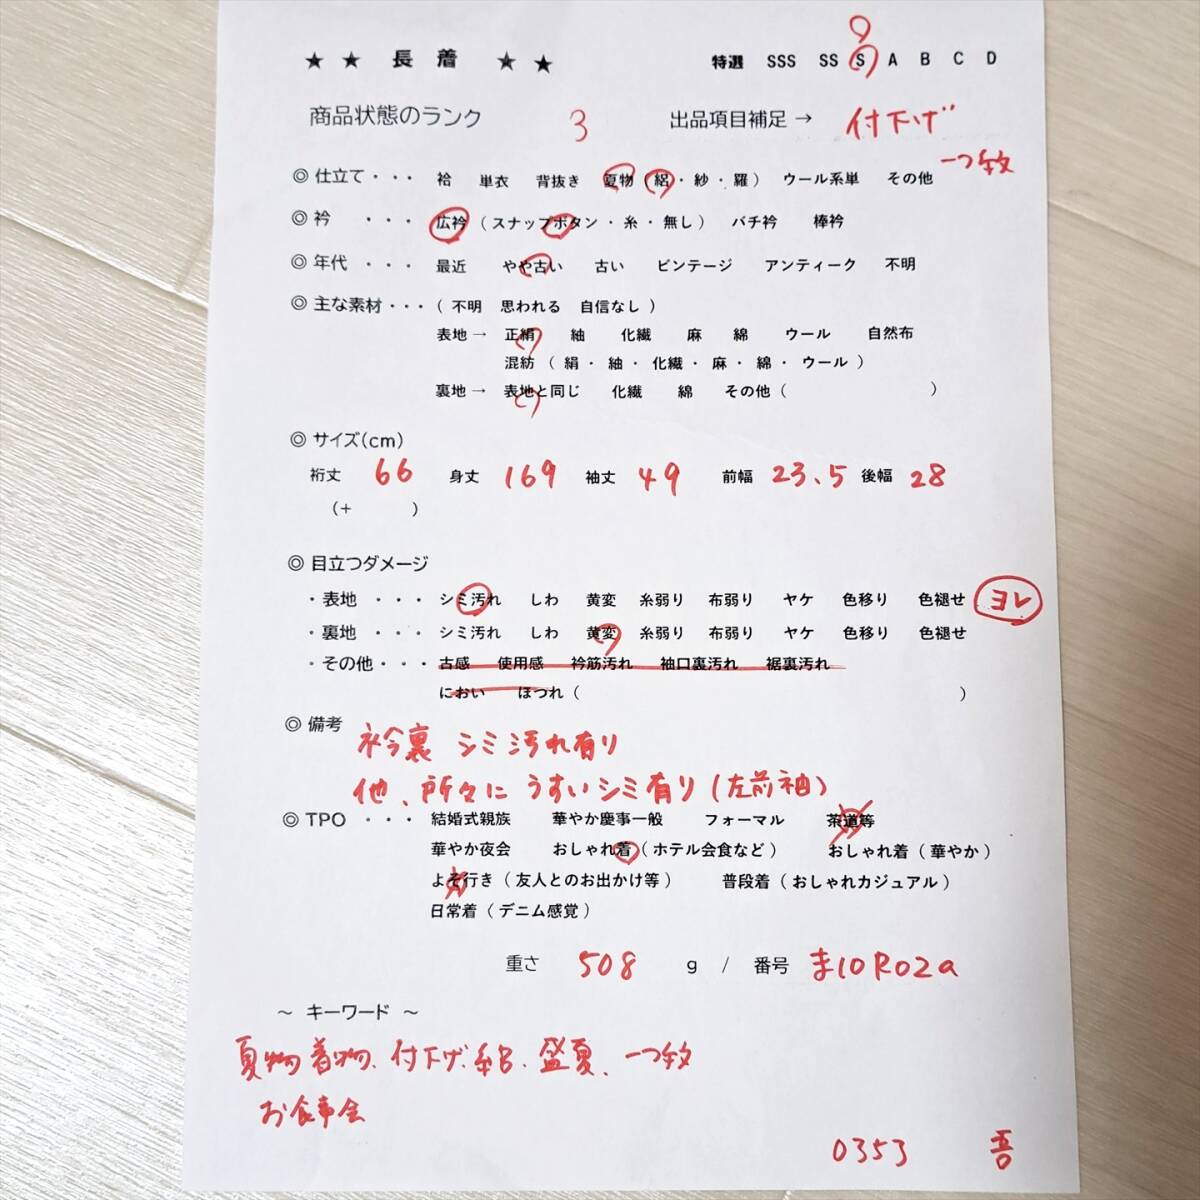 ★ ★ 長 着 ★ ★ 特選 SSS SS S A B C D
商品状態のランク 3 出品項目補足 → 付下げ
一つ紋
◎ 仕立て ・・・ 袷 単衣 背抜き 夏物 ( 絽 ・ 紗 ・ 羅 ) ウール系単 その他
◎ 衿 ・・・ 広衿 ( スナップボタン ・ 糸 ・ 無し ) バチ衿 棒衿
◎ 年代 ・・・ 最近 やや古い 古い ビンテージ アンティーク 不明
◎ 主な素材 ・・・ ( 不明 思われる 自信なし )
表地 → 正絹 紬 化繊 麻 綿 ウール 自然布
混紡 ( 絹 ・ 紬 ・ 化繊 ・ 麻 ・ 綿 ・ ウール )
裏地 → 表地と同じ 化繊 綿 その他 ( )
◎ サイズ(cm)
裄丈 66 身丈 169 袖丈 49 前幅 23.5 後幅 28
(+ )
◎ 目立つダメージ
・表地 ・・・ シミ汚れ しわ 黄変 糸弱り 布弱り ヤケ 色移り 色褪せ ヨレ
・裏地 ・・・ シミ汚れ しわ 黄変 糸弱り 布弱り ヤケ 色移り 色褪せ
・その他 ・・・ 古感 使用感 衿筋汚れ 袖口裏汚れ 裾裏汚れ
におい ほつれ ( )
◎ 備考 衿裏 シミ汚れ有り
他、所々に うすいシミ有り (左前袖)
◎ TPO ・・・ 結婚式親族 華やか慶事一般 フォーマル 茶道等
華やか夜会 おしゃれ着 ( ホテル会食など ) おしゃれ着 ( 華やか )
よそ行き ( 友人とのお出かけ等 ) 普段着 ( おしゃれカジュアル )
日常着 ( デニム感覚 )
重さ 508 g / 番号 ま10R02a
～ キーワード ～
夏物着物、付下げ、絽、盛夏、一つ紋
お食事会
0353 吾